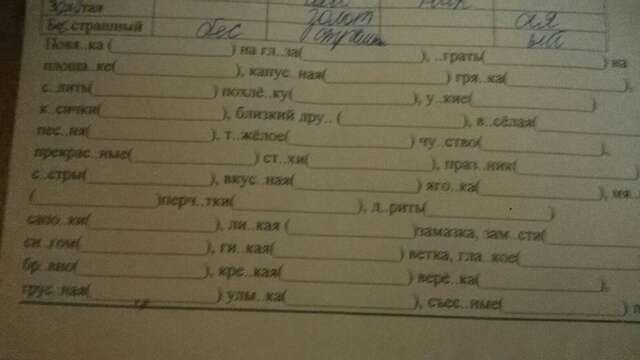 Зол..тая золот ая
Бе..страшный бес страшн ый
Повя..ка (______) на гл..за(______), ..грать(______) на
площа..ке(______), капус..ная(______) гря..ка(______),
с..лить(______) похлё..ку(______), у..кие(______)
к..сички(______), близкий дру.. (______), в..сёлая(______
пес..ня(______), т..жёлое(______) чу..ство(______),
прекрас..ные(______) ст..хи(______), праз..ник(______)
с..стры(______), вкус..ная(______) яго..ка(______), мя..
(______)перч..тки(______), д..рить(______)
сапо..ки(______), ли..кая (______)замазка, зам..сти(______
си..гом(______), ги..кая(______) ветка, гла..кое(______
бр..вно(______), кре..кая(______) верё..ка(______),
грус..ная(______) улы..ка(______), съес..ные(______) п